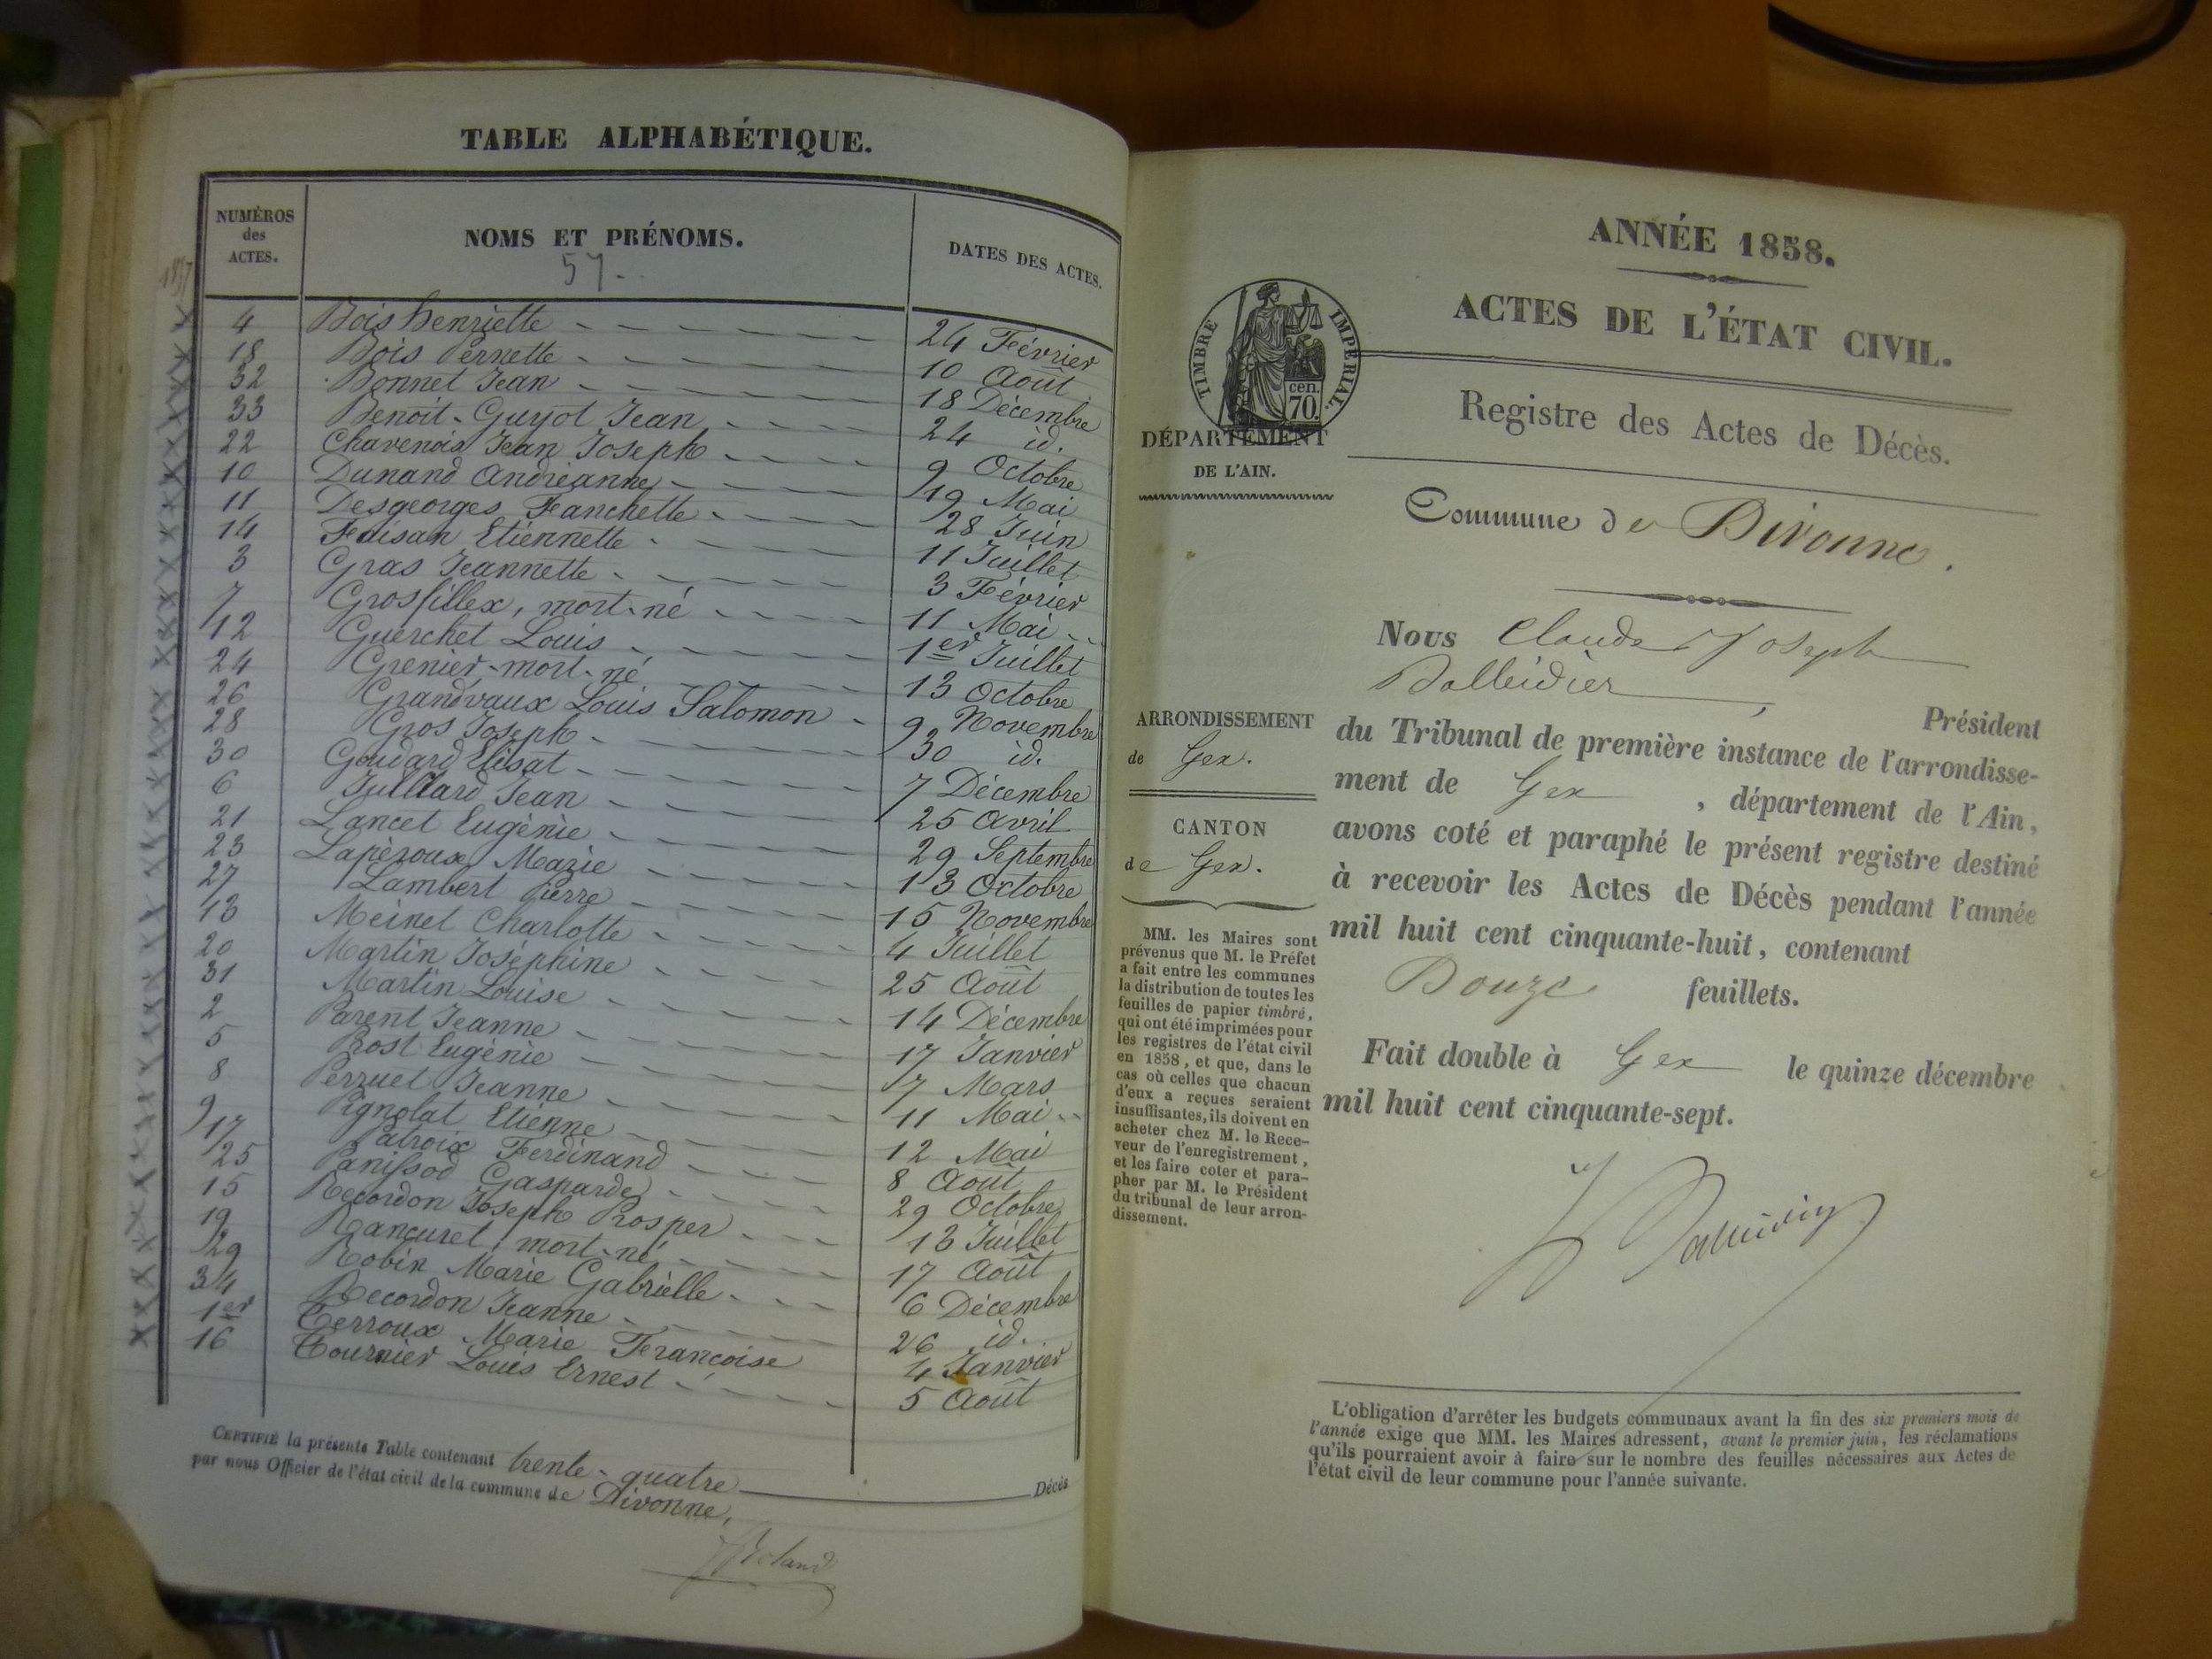 TABLE ALPHABÉTIQUE.
NUMÉROS des ACTES.
NOMS ET PRÉNOMS.
DATES DES ACTES.
57.
1857
4 Bois henriette 24 Février
18 Bois Pernette 10 Août
32 Bonnet Jean 18 Décembre
33 Benoit-Guyot Jean 24 id.
22 Chavenois Jean Joseph 9 Octobre
10 Dunand Andréanne 19 Mai
11 Desgeorges Fanchette 28 Juin
14 Faisan Etiennette 11 Juillet
3 Gras Jeannette 3 Février
7 Grosfillex, mort-né 11 Mai
12 Guerchet Louis 1er Juillet
24 Grenier-mort-né 13 Octobre
26 Grandvaux Louis Salomon 9 Novembre
28 Gros Joseph 30 id.
30 Goudard Elisat 7 Décembre
6 Julliard Jean 25 Avril
21 Lancet Eugènie 29 Septembre
23 Lapèroux Marie 13 Octobre
27 Lambert Pierre 15 Novembre
13 Meinet Charlotte 4 Juillet
20 Martin Joséphine 25 Août
31 Martin Louise 14 Décembre
2 Parent Jeanne 17 Janvier
5 Prost Eugènie 7 Mars
8 Perruet Jeanne 11 Mai
9 Pignolat Etienne 12 Mai
17 Patroix Ferdinand 8 Août
25 Panissod Gasparde 29 Octobre
15 Recordon Joseph Prosper 13 Juillet
19 Rancuret, mort-né 17 Août
29 Robin Marie Gabrielle 6 Décembre
34 Recordon Jeanne 26 id.
1er Terroux Marie Françoise 4 Janvier
16 Tournier Louis Ernest 5 Août
CERTIFIÉ la présente Table contenant trente-quatre Décès
par nous Officier de l'état civil de la commune de Divonne.
Roland
ANNÉE 1858.
ACTES DE L'ÉTAT CIVIL.
TIMBRE IMPÉRIAL.
cen.
70.
Registre des Actes de Décès.
DÉPARTEMENT
DE L'AIN.
Commune de Divonne.
Nous Claude Joseph
Balleidier,
Président
du Tribunal de première instance de l'arrondisse-
ment de Gex, département de l'Ain,
avons coté et paraphé le présent registre destiné
à recevoir les Actes de Décès pendant l'année
mil huit cent cinquante-huit, contenant
Douze feuillets.
Fait double à Gex le quinze décembre
mil huit cent cinquante-sept.
ARRONDISSEMENT
de Gex.
CANTON
de Gex.
MM. les Maires sont
prévenus que M. le Préfet
a fait entre les communes
la distribution de toutes les
feuilles de papier timbré,
qui ont été imprimées pour
les registres de l'état civil
en 1858, et que, dans le
cas où celles que chacun
d'eux a reçues seraient
insuffisantes, ils doivent en
acheter chez M. le Rece-
veur de l'enregistrement,
et les faire coter et para-
pher par M. le Président
du tribunal de leur arron-
dissement.
L'obligation d'arrêter les budgets communaux avant la fin des six premiers mois de
l'année exige que MM. les Maires adressent, avant le premier juin, les réclamations
qu'ils pourraient avoir à faire sur le nombre des feuilles nécessaires aux Actes de
l'état civil de leur commune pour l'année suivante.